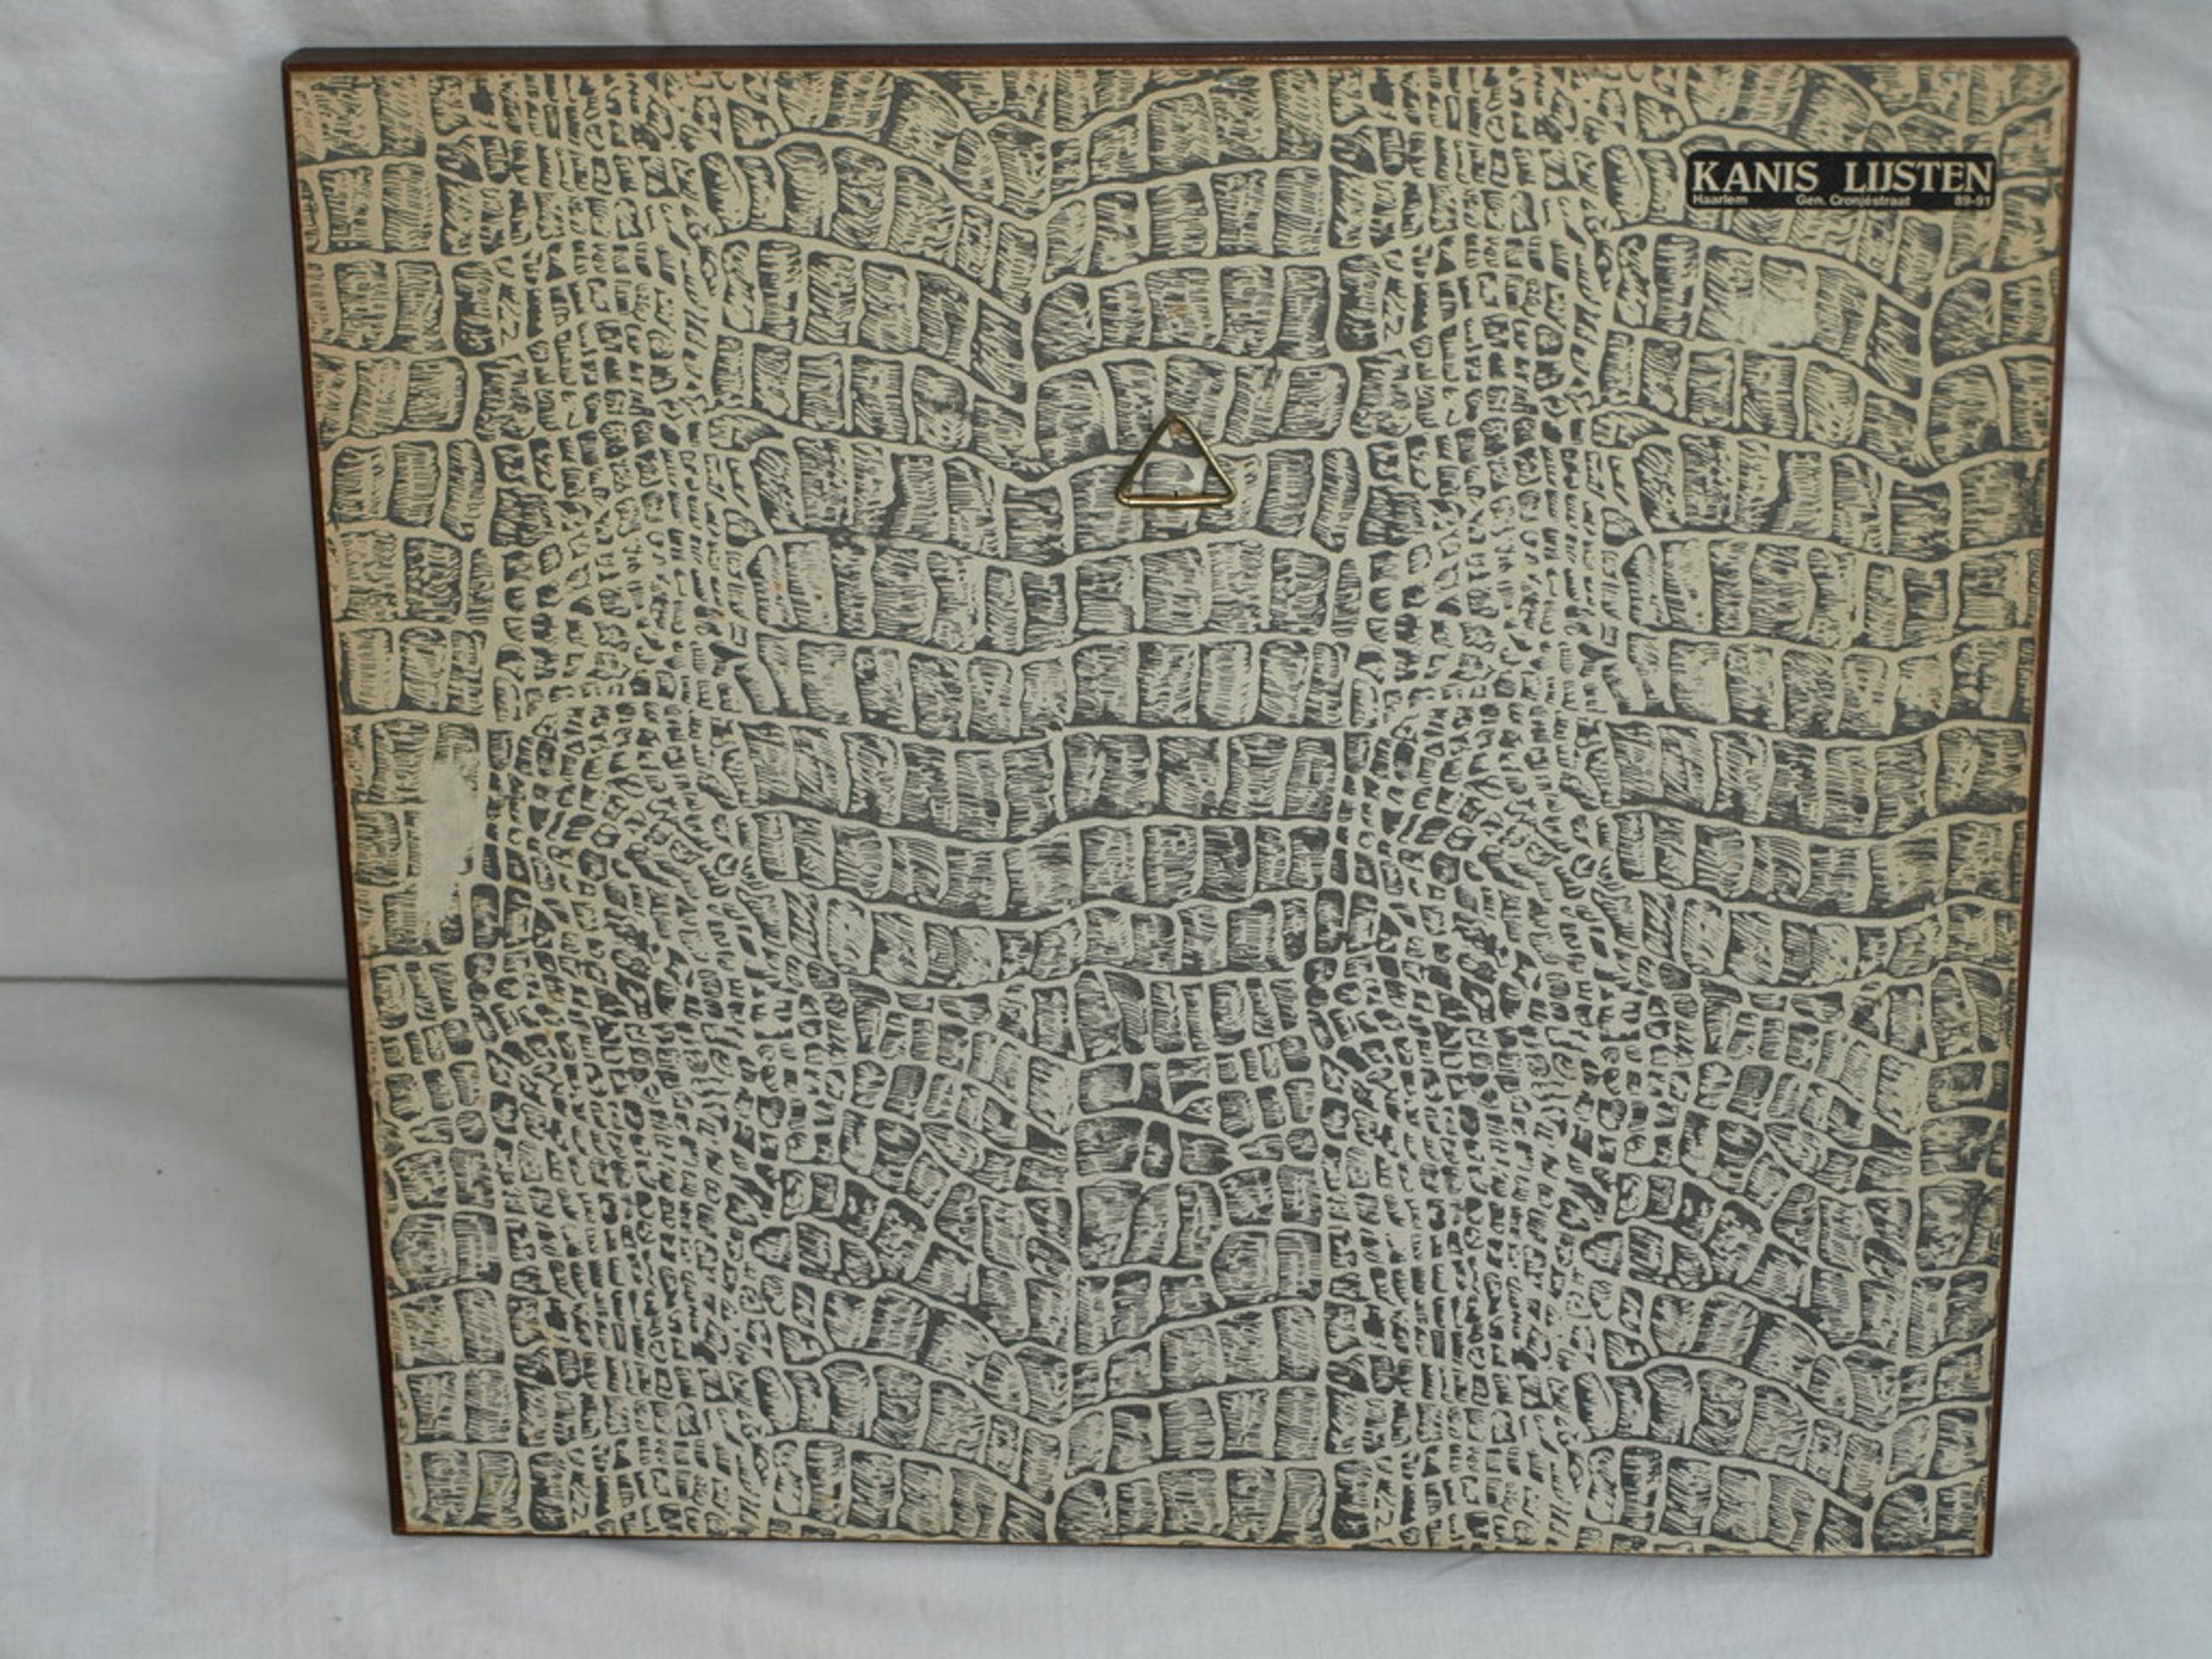 KANIS LIJSTEN
Haarlem Gen. Cronjéstraat 89-91